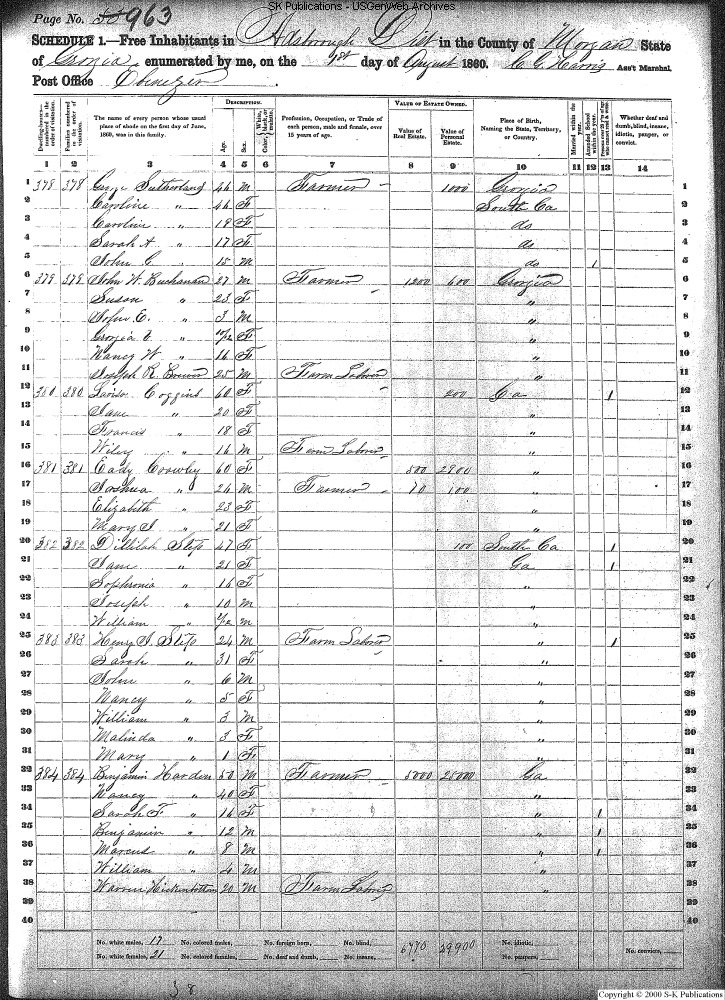 SK Publications - USGenWeb Archives
Page No. 50 963
SCHEDULE 1.—Free Inhabitants in Dist in the County of Morgan State
of Georgia enumerated by me, on the 1st day of August 1860. C. C. Harris Ass't Marshal.
Post Office Ebenezer
Dwelling-houses—numbered in the order of visitation.
Families numbered in the order of visitation.
The name of every person whose usual place of abode on the first day of June, 1860, was in this family.
DESCRIPTION.
Age.
Sex.
Color, White, black, or mulatto.
Profession, Occupation, or Trade of each person, male and female, over 15 years of age.
VALUE OF ESTATE OWNED.
Value of Real Estate.
Value of Personal Estate.
Place of Birth, Naming the State, Territory, or Country.
Married within the year.
Attended School within the year.
Whether deaf and dumb, blind, insane, idiotic, pauper, or convict.
1 2 3 4 5 6 7 8 9 10 11 12 13 14
1 378 378 George Sutherland 46 M Farmer 1000 Georgia 1
2 Caroline " 46 F South Ca 2
3 Caroline " 19 F do 3
4 Sarah A " 17 F do 4
5 John G. " 15 M do 1 5
6 379 379 John W. Buchanan 27 M Farmer 1200 600 Georgia 6
7 Susan " 23 F " 7
8 John E. " 3 M " 8
9 Georgia " 10/12 F " 9
10 Nancy W " 16 F " 10
11 Joseph R. Brewer 25 M Farm Laborer " 11
12 380 380 Coggins 60 F 200 Ga 1 12
13 Jane " 20 F " 13
14 Francis " 18 F " 14
15 Wiley " 16 M Farm Laborer " 15
16 381 381 Cady Crowley 60 F 500 2900 " 16
17 Joshua " 26 M Farmer 70 100 " 17
18 Elizabeth " 23 F " 18
19 Mary J " 21 F " 19
20 382 382 Dillilah Slips 47 F 100 South Ca 1 20
21 Jane " 21 F Ga 1 21
22 Sophronia " 16 F " 22
23 Joseph " 10 M " 23
24 William " M " 24
25 383 383 Henry J. Slips 24 M Farm Laborer " 1 25
26 Sarah " 31 F " 26
27 John " 6 M " 27
28 Nancy " 5 F " 28
29 William " 3 M " 29
30 Malinda " 3 F " 30
31 Mary " 1 F " 31
32 384 384 Benjamin Harden 50 M Farmer 5000 25000 Ga 32
33 Nancy " 40 F " 33
34 Sarah F " 16 F " 1 34
35 Benjamin " 12 M " 1 35
36 Marcus " 8 M " 1 36
37 William " 4 M " 37
38 Warren Hickinbottom 20 M Farm Labor " 38
39 39
40 40
No. white males, 17 No. colored males, No. foreign born, No. blind, 6770 29900 No. idiotic,
No. white females, 21 No. colored females, No. deaf and dumb, No. insane, No. paupers, No. convicts,
58
Copyright © 2000 S-K Publications